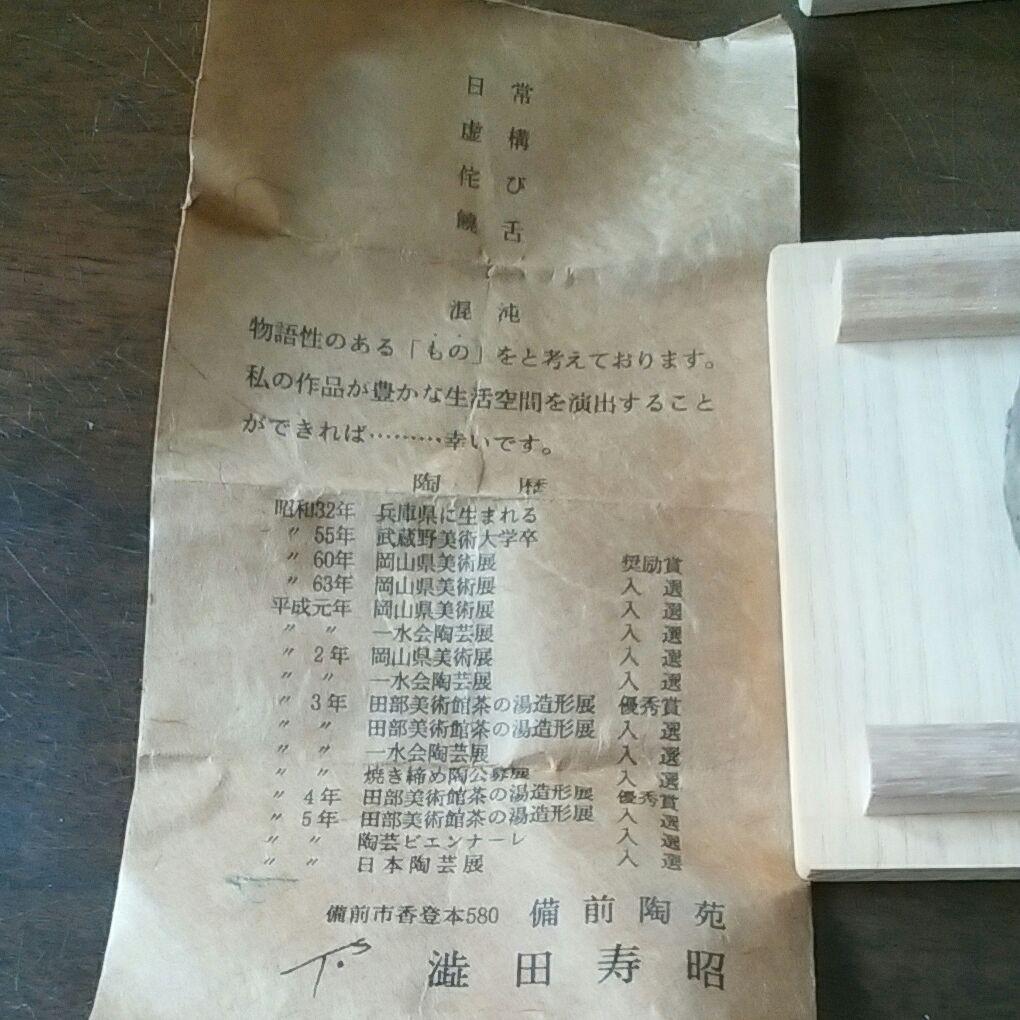 日常
虚構
侘び
饒舌
混沌
物語性のある「もの」をと考えております。
私の作品が豊かな生活空間を演出すること
ができれば………幸いです。
陶歴
昭和32年 兵庫県に生まれる
〃 55年 武蔵野美術大学卒
〃 60年 岡山県美術展 奨励賞
〃 63年 岡山県美術展 入選
平成元年 岡山県美術展 入選
〃 〃 一水会陶芸展 入選
〃 2年 岡山県美術展 入選
〃 〃 一水会陶芸展 入選
〃 3年 田部美術館茶の湯造形展 優秀賞
〃 〃 田部美術館茶の湯造形展 入選
〃 〃 一水会陶芸展 入選
〃 〃 焼き締め陶公募展 入選
〃 4年 田部美術館茶の湯造形展 優秀賞
〃 5年 田部美術館茶の湯造形展 入選
〃 〃 陶芸ビエンナーレ 入選
〃 〃 日本陶芸展 入選
備前市香登本580 備前陶苑
澁田寿昭